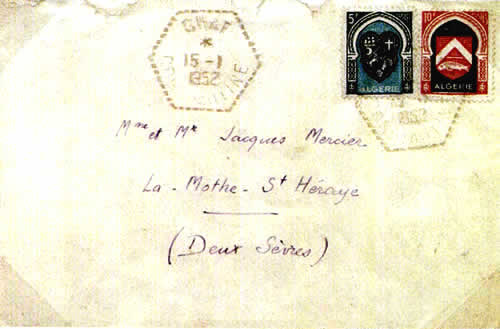 GREF
*
15-1
1952
5F
ALGERIE
10F
ALGERIE
1952
Mme et Mr Jacques Mercier
La-Mothe-St Héraye
(Deux Sèvres)